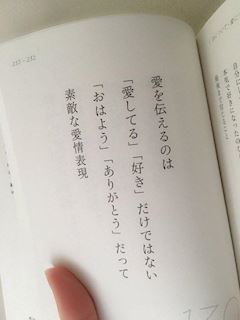 愛を伝えるのは
「愛してる」「好き」だけではない
「おはよう」「ありがとう」だって
素敵な愛情表現